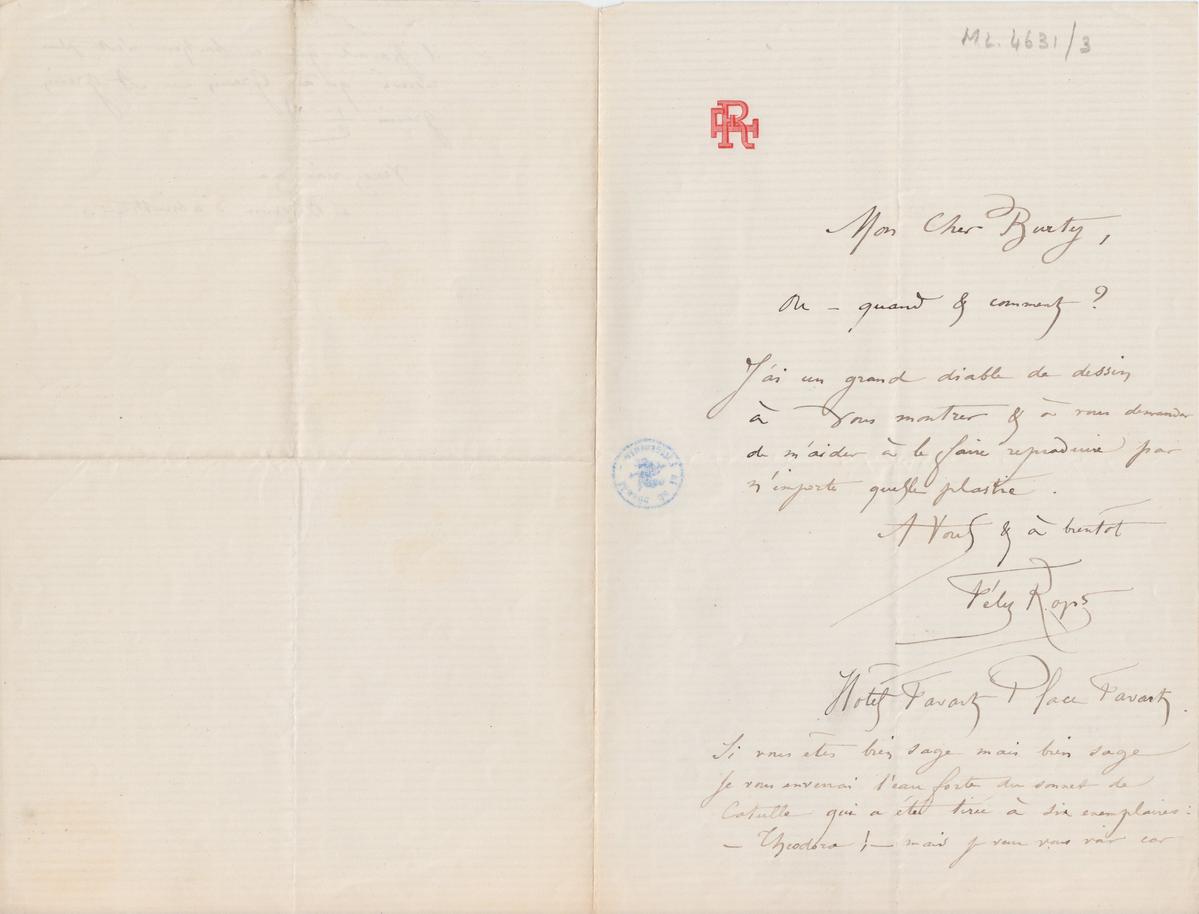 ML. 4631/3
FR
Mon Cher Burty,
Ou – quand & comment ?
J'ai un grand diable de dessin
à vous montrer & à vous demander
de m'aider à le faire reproduire par
n'importe quelle plastre .
A Vous & à bientôt
Félix Rops
Hôtel Favart Place Favart .
Si vous êtes bien sage mais bien sage
je vous enverrai l'eau forte du sonnet de
Catulle qui a été tirée à six exemplaires :
— Théodora ! — mais je veux vous voir car